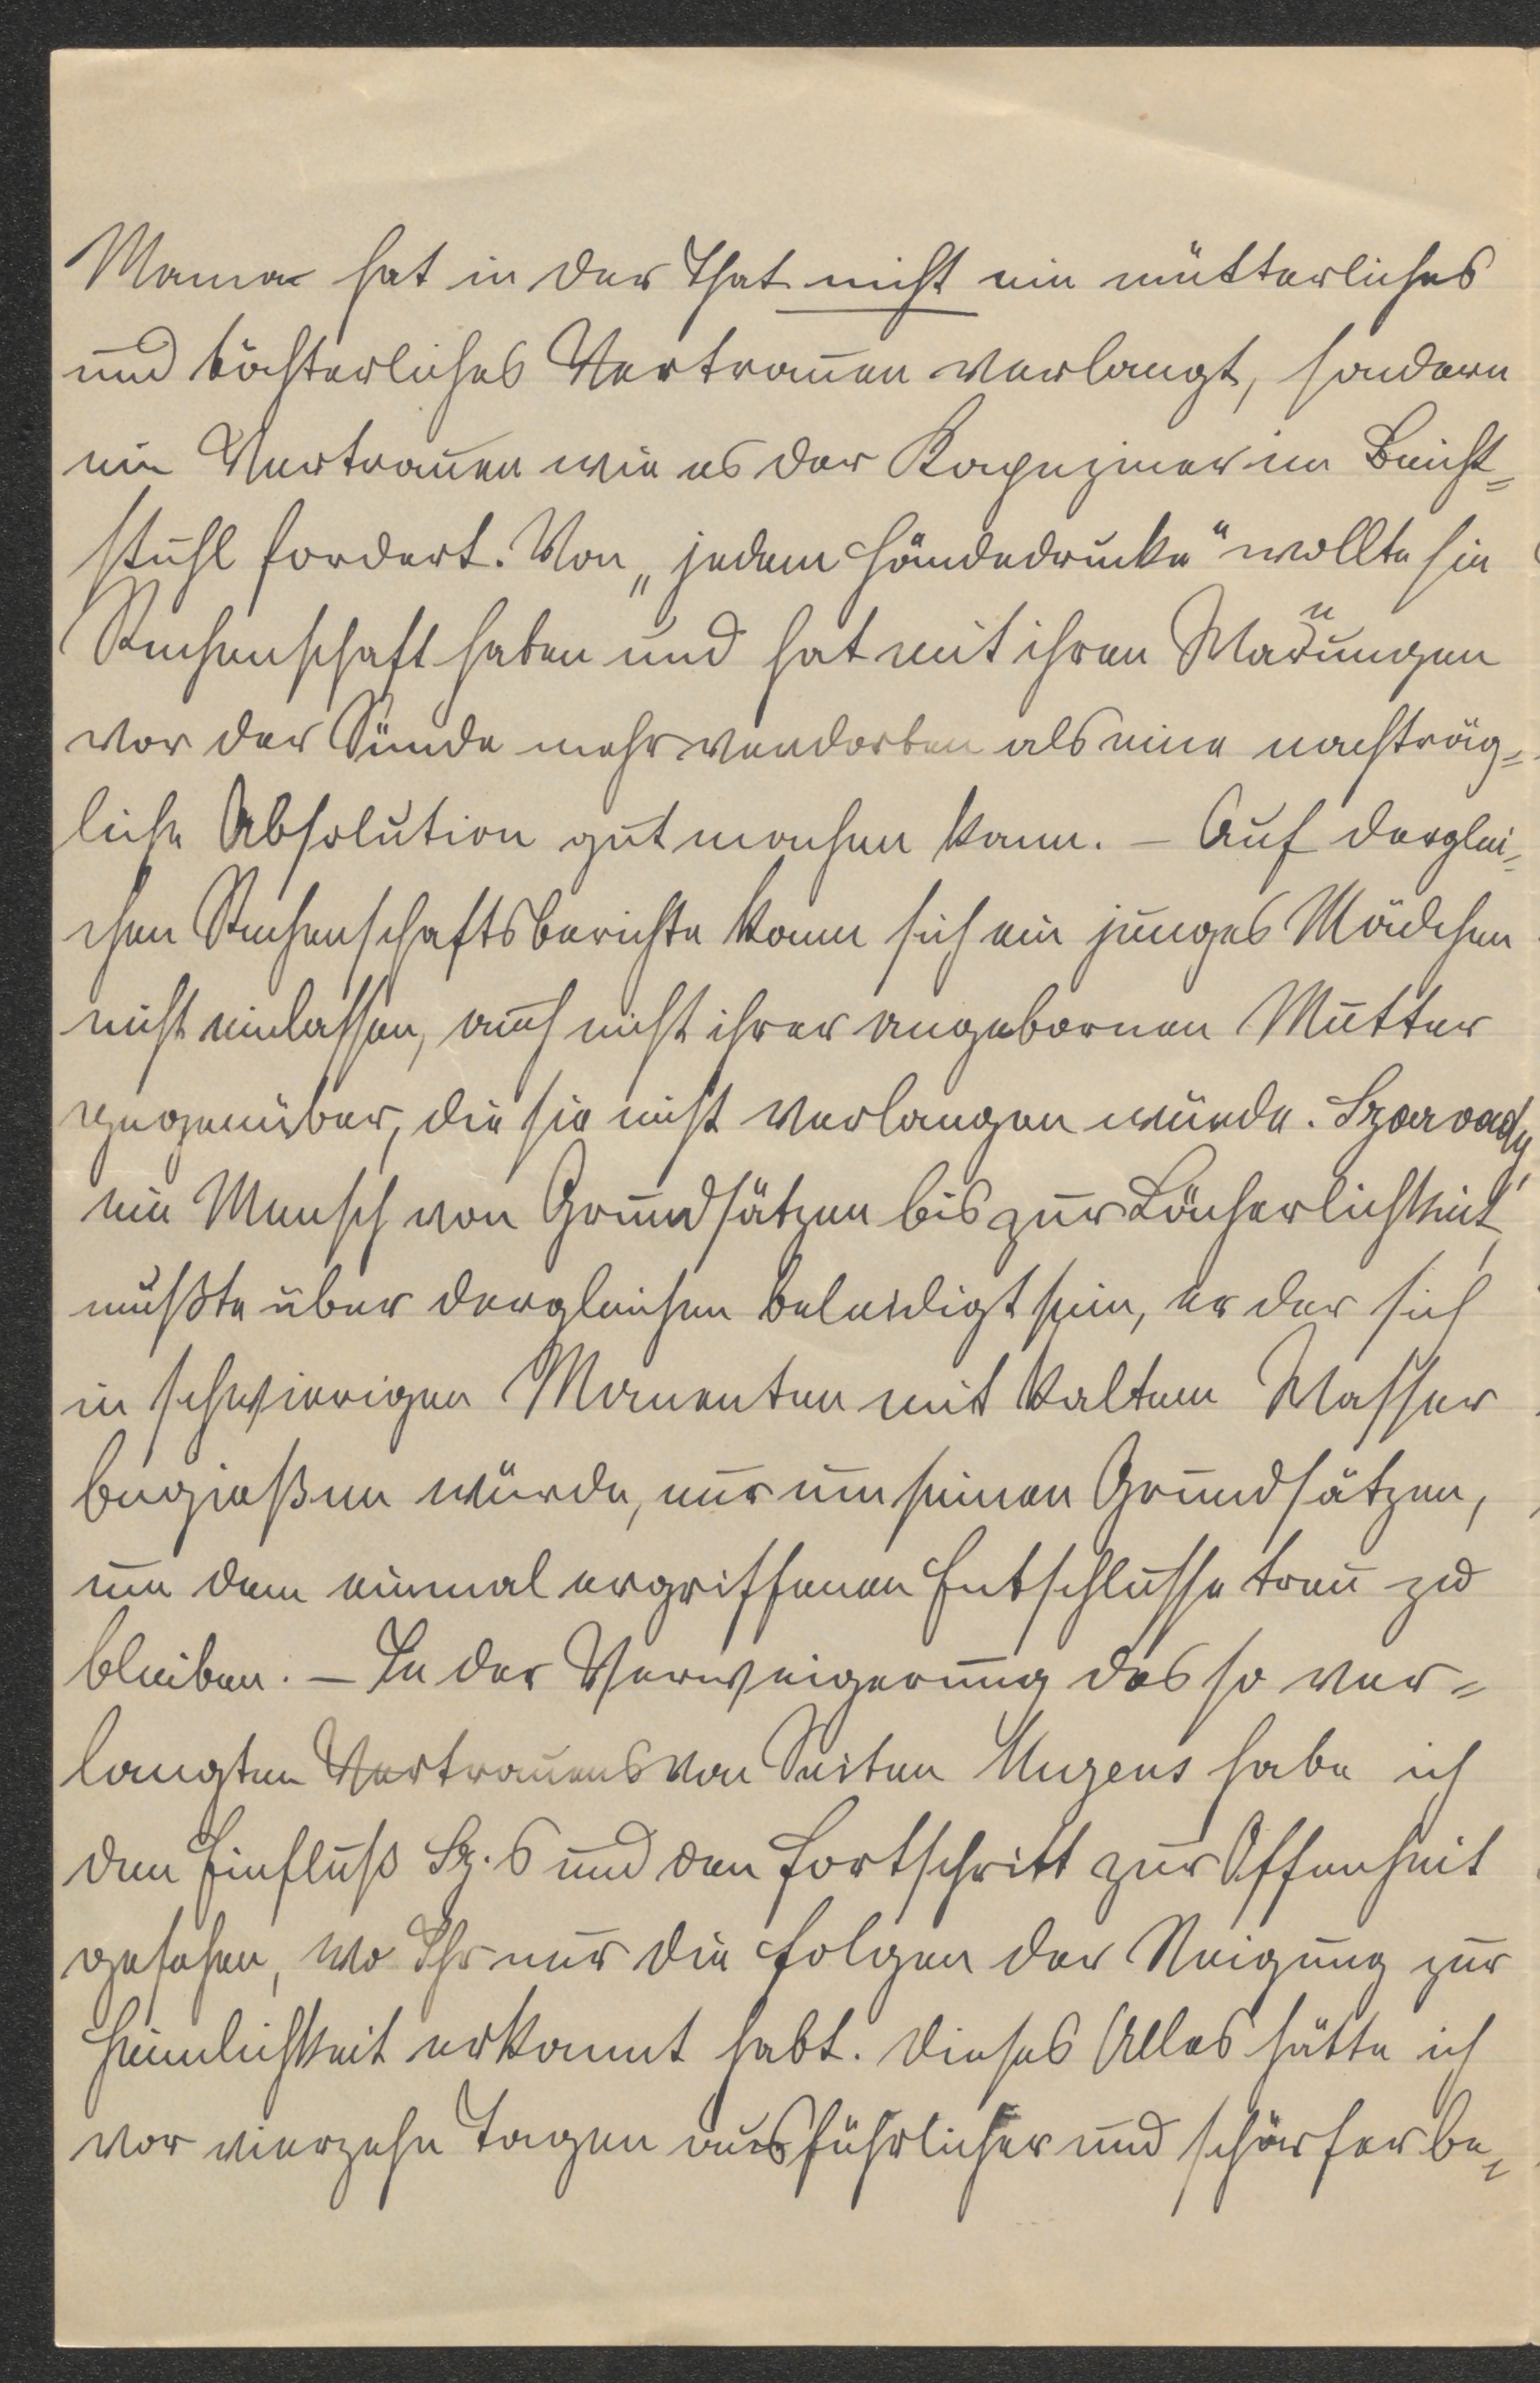 Mama hat in der That nicht ein mütterliches
und töchterliches Vertrauen verlangt, sondern
ein Vertrauen wie es der Kapuziner im Beicht=
stuhl fordert. Von „jedem Händedrucke" wollte sie
Rechenschaft haben und hat mit ihren Warnungen
vor der Sünde mehr verdorben als eine nachträg=
liche Absolution gut machen kann. – Auf derglei=
chen Rechenschaftsberichte kann sich ein junges Mädchen
nicht einlassen, auch nicht ihrer angebornen Mutter
gegenüber, die sie nicht verlangen würde. Szarvady,
ein Mensch von Grundsätzen bis zur Lächerlichkeit,
mußte über dergleichen beleidigt sein, er der sich
in schwierigen Momenten mit kaltem Wasser
begießen würde, nur um seinen Grundsätzen,
um dem einmal ergriffenen Entschlusse treu zu
bleiben. – In der Verweigerung des so ver=
langten Vertrauens von Seiten habe ich
den Einfluß Sz.s und den Fortschritt zur Offenheit
gesehen, wo Ihr nur die Folgen der Neigung zur
Heimlichkeit erkannt habt. Dieses Alles hätte ich
vor vierzehn Tagen ausführlicher und schärfer be=